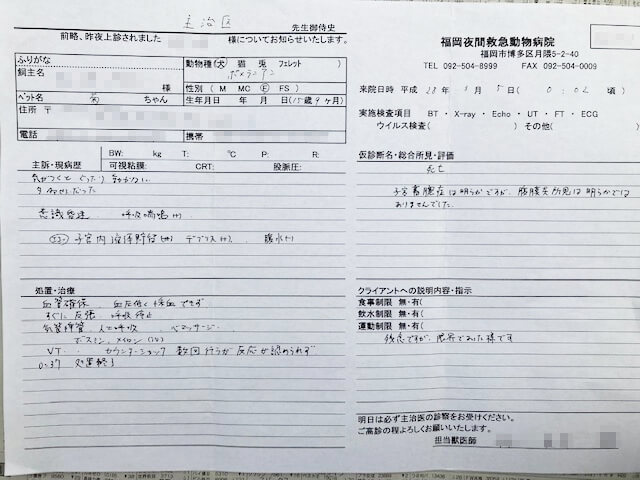 主治医 先生御侍史
前略、昨夜上診されました 様についてお知らせいたします。
ふりがな
飼主名
様
ペット名 菊 ちゃん
住所 〒
電話 携帯
動物種(犬 猫 兎 フェレット )
ポメラニアン
性別 ( M MC F FS )
生年月日 年 月 日(15歳9ヶ月)
BW: kg T: ℃ P: R:
主訴・現病歴 可視粘膜: CRT: 股脈圧:
気がつくと ぐったり
意識昏迷 呼吸喘鳴(+)
エコー 子宮内液体貯留(+) デブリス(+) 腹水(-)
処置・治療
血管確保 血圧低く採血できず
すぐに 呼吸停止
気管挿管 人工呼吸 心マッサージ
ボスミン
VT カウンターショック 数回行うが反応が認められず
0:37 処置終了
福岡夜間救急動物病院
福岡市博多区月隈5-2-40
TEL 092-504-8999 FAX 092-504-0009
来院日時 平成 28年 月 5日( 0:02 頃)
実施検査項目 BT ・ X-ray ・ Echo ・ UT ・ FT ・ ECG
ウイルス検査( ) その他( )
仮診断名・総合所見・評価
死亡
子宮蓄膿症は明らかですが、腹膜炎所見は明らかでは
ありませんでした。
クライアントへの説明内容・指示
食事制限 無・有(
飲水制限 無・有(
運動制限 無・有(
残念ですが、限界であった様です
明日は必ず主治医の診察をお受けください。
ご高診の程よろしくお願いいたします。
担当獣医師